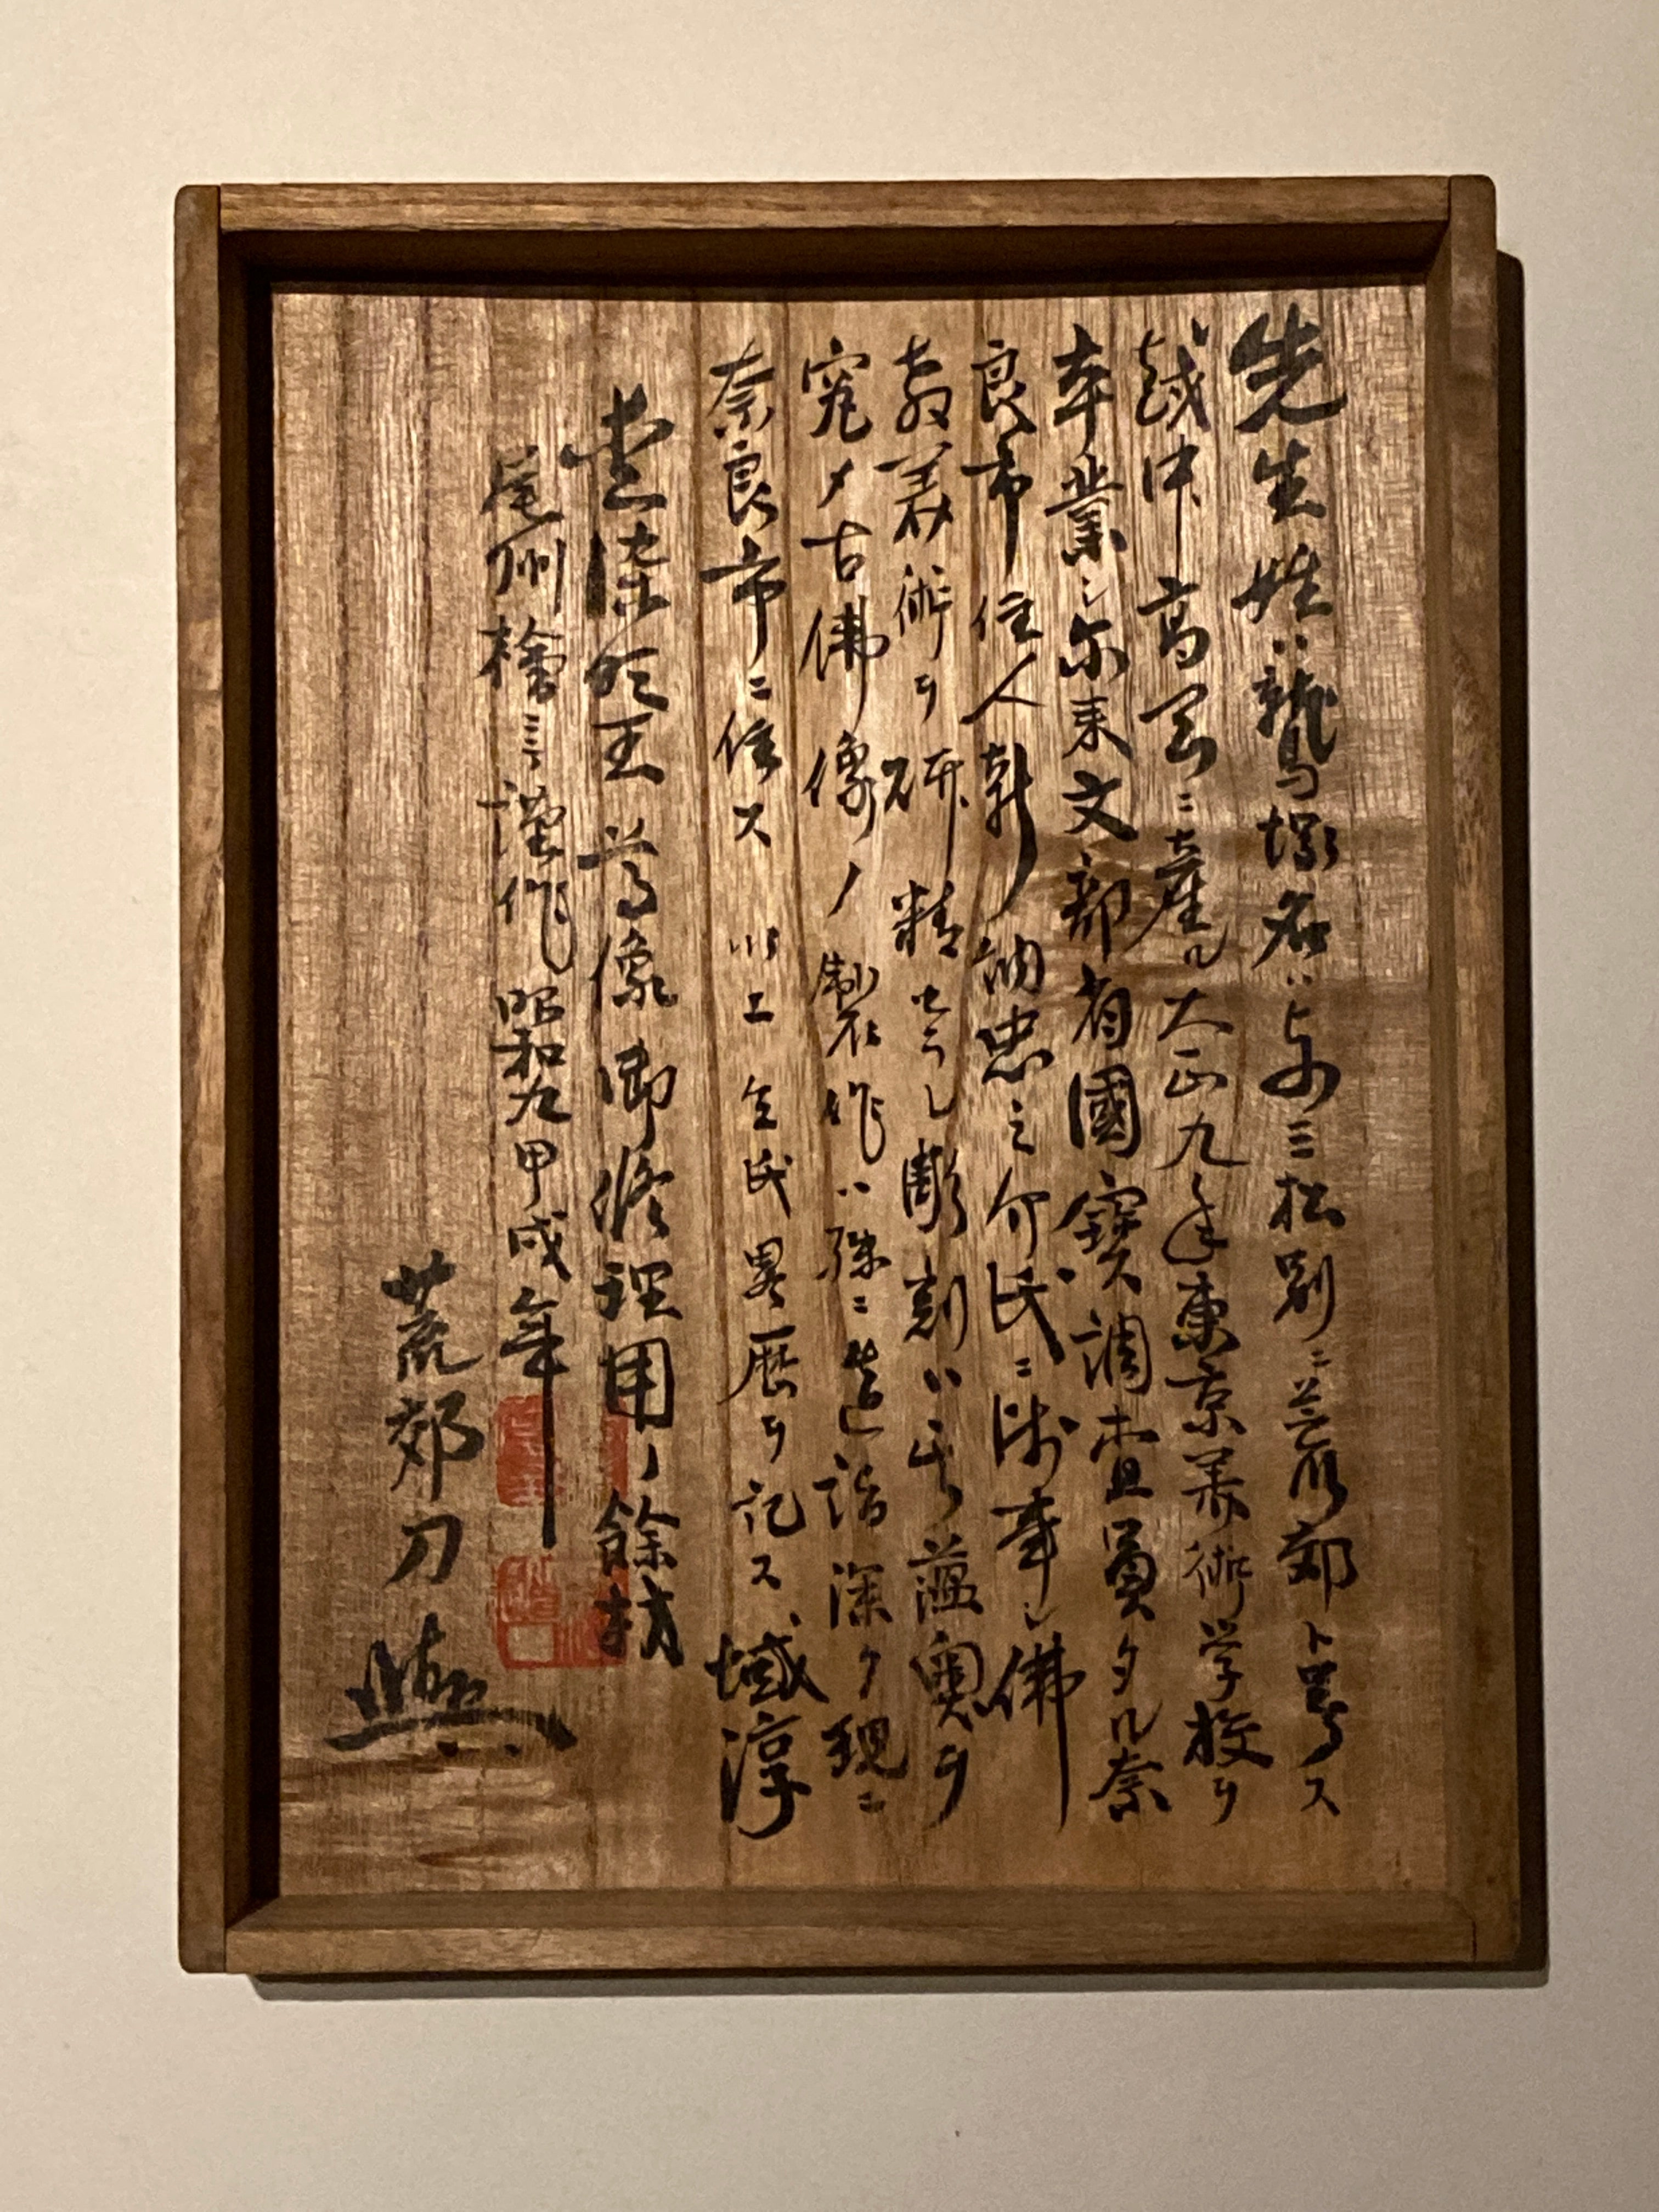 先生姓ハ鷲塚名ハ与三松別ニ荒郊ト号ス
越中高岡ニ産ル大正九年東京美術学校ヲ
卒業シ尓来文部省國寶調査員タル奈
良市住人新納忠之介氏ニ師事シ佛
教美術ヲ研精セラレ彫刻ハ其蘊奥ヲ
究メ古佛像ノ製作ハ殊ニ造詣深ク現ニ
奈良市ニ住ス 以上 全氏畧歴ヲ記ス 城淳
愛染明王尊像御修理用ノ餘材
尾州檜ニテ謹作 昭和九甲戌年
荒郊刀